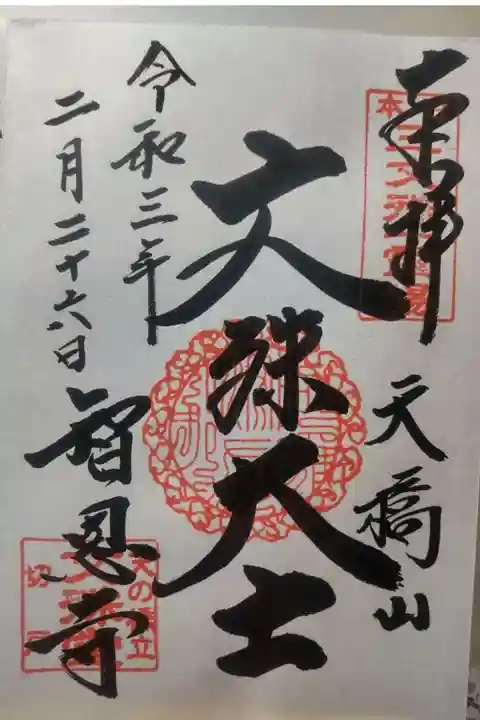 奉拝
天橋山
文殊大士
令和三年
二月二十六日
智恩寺
天の橋立
切戸